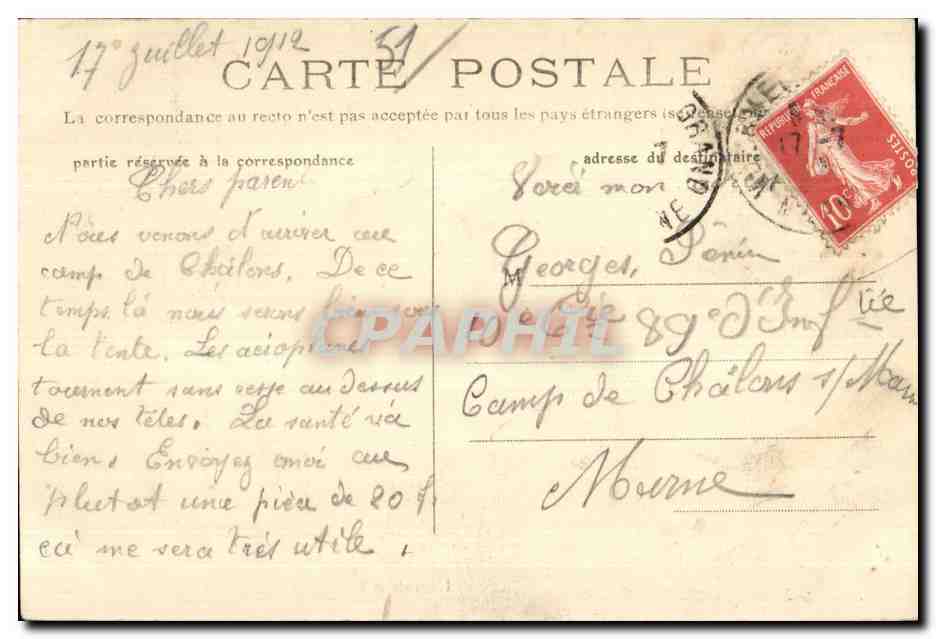 17 juillet 1912
51
CARTE POSTALE
La correspondance au recto n'est pas acceptée par tous les pays étrangers
partie réservée à la correspondance
Chers paren
Nous venons d'arriver au
camp de Châlons. De ce
temps là nous serons bien sou
la tente. Les aéroplanes
tournent sans cesse au dessus
de nos têtes. La santé va
bien. Envoyez moi au
plutot une pièce de 20 f.
ça me sera très utile.
adresse du destinataire
Voici mon
M Georges, Pénin
Cie 89e d'Inf rie
Camp de Châlons s/Marn
Marne
REPUBLIQUE FRANÇAISE
POSTES
10 c
17 -7
GRAND
NE
CPAPHIL